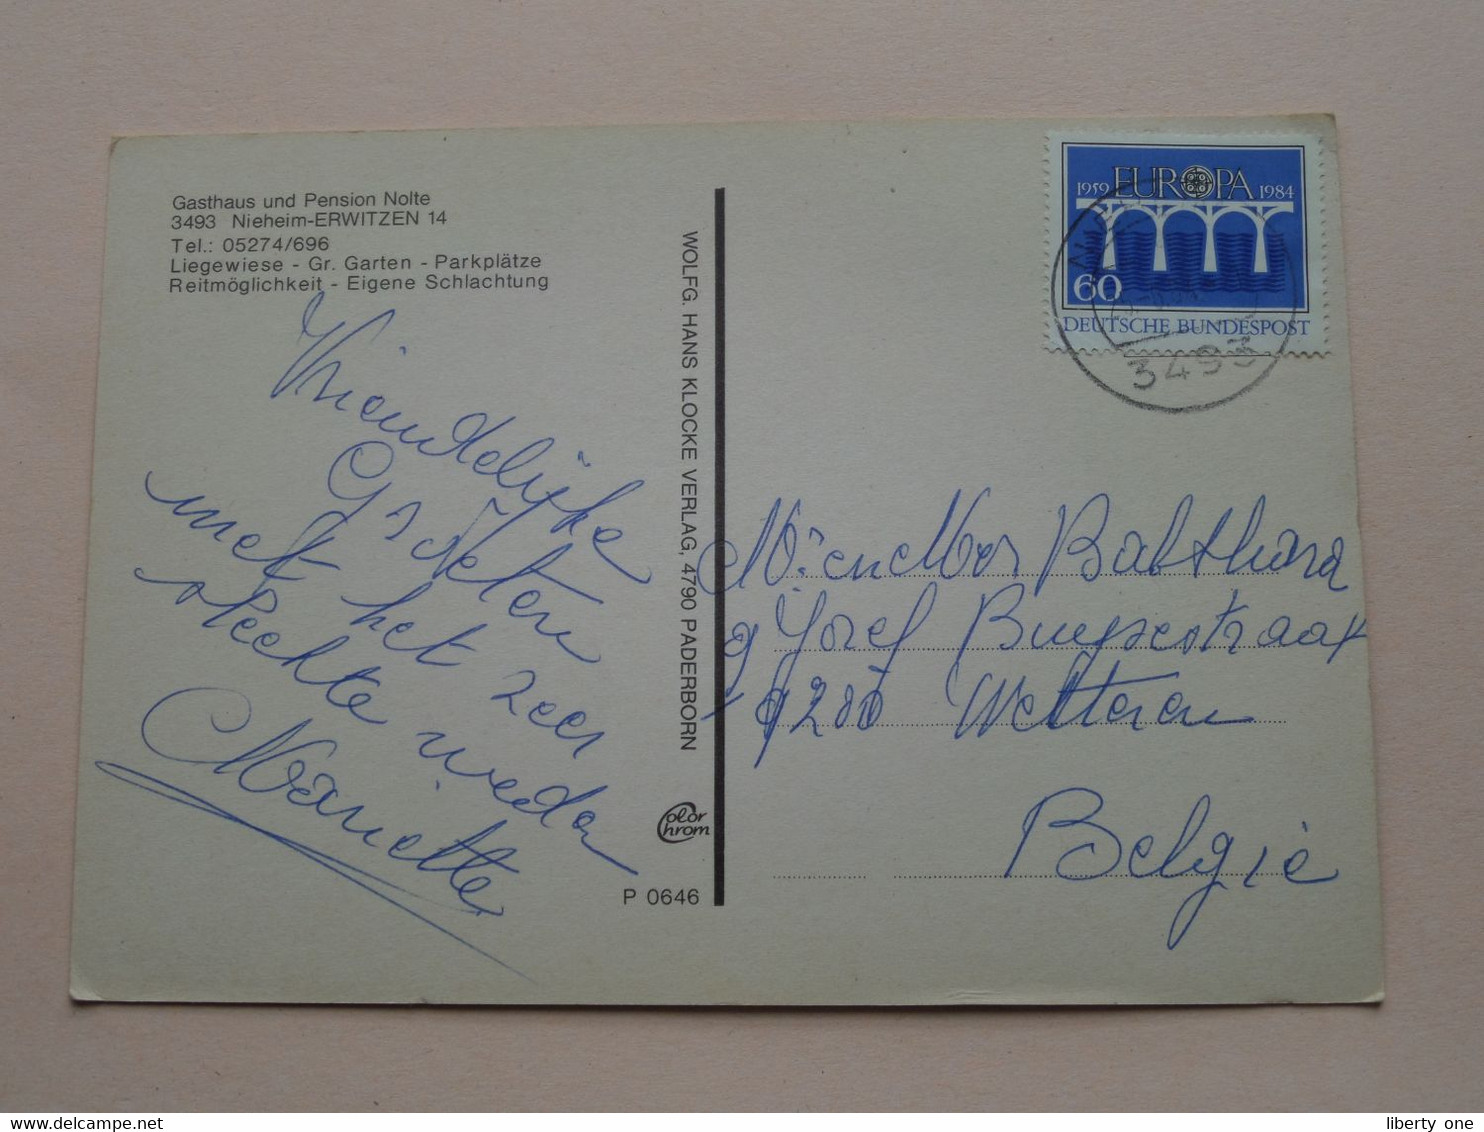 Gasthaus und Pension Nolte
3493 Nieheim-ERWITZEN 14
Tel.: 05274/696
Liegewiese - Gr. Garten - Parkplätze
Reitmöglichkeit - Eigene Schlachtung
Vriendelijke
Groeten
met het zeer
slechte weder
Mariette
WOLFG. HANS KLOCKE VERLAG, 4790 PADERBORN
Color Chrom
P 0646
1959 EUROPA 1984
60
DEUTSCHE BUNDESPOST
3493
Jozef
9200 Wetteren
België
liberty one